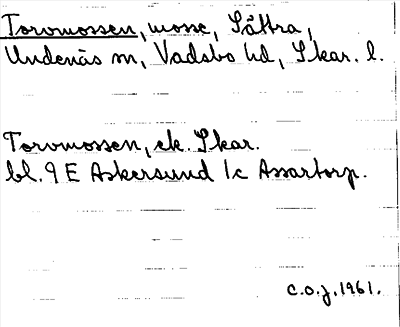 Torvmossen, mosse, Sättra,
Undenäs sn, Vadsbo hd, Skar. l.
Torvmossen, ek. Skar.
bl. 9 E Askersund 1c Assartorp.
C.O.J. 1961.